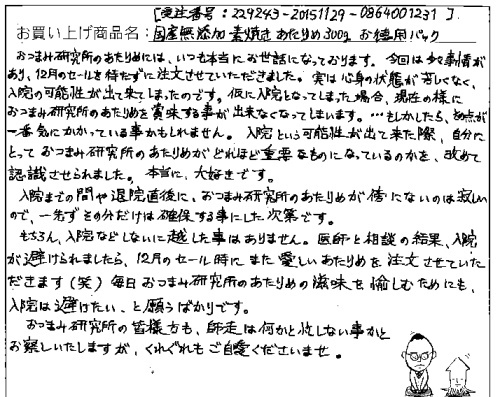 [受注番号:229243-20151129-0864001231]
お買い上げ商品名:国産無添加 素焼き あたりめ300g お徳用パック
おつまみ研究所のあたりめには、いつも本当にお世話になっております。今回は少々事情が
あり、12月のセールを待たずに注文させていただきました。実は心身の状態が芳しくなく、
入院の可能性が出て来てしまったのです。仮に入院となってしまった場合、現在の様に
おつまみ研究所のあたりめを賞味する事が出来なくなってしまいます。…もしかしたら、その点が
一番気にかかっている事かもしれません。入院という可能性が出て来た際、自分に
とっておつまみ研究所のあたりめがどれほど重要なものになっているのかを、改めて
認識させられました。本当に、大好きです。
入院までの間や退院直後に、おつまみ研究所のあたりめが傍にないのは寂しい
ので、一先ずその分だけは確保する事にした次第です。
もちろん、入院などしないに越した事はありません。医師と相談の結果、入院
が避けられましたら、12月のセール時にまた愛しいあたりめを注文させていた
だきます(笑)毎日おつまみ研究所のあたりめの滋味を愉しむためにも、
入院は避けたい、と願うばかりです。
おつまみ研究所の皆様方も、師走は何かと忙しない事かと
お察しいたしますが、くれぐれもご自愛くださいませ。